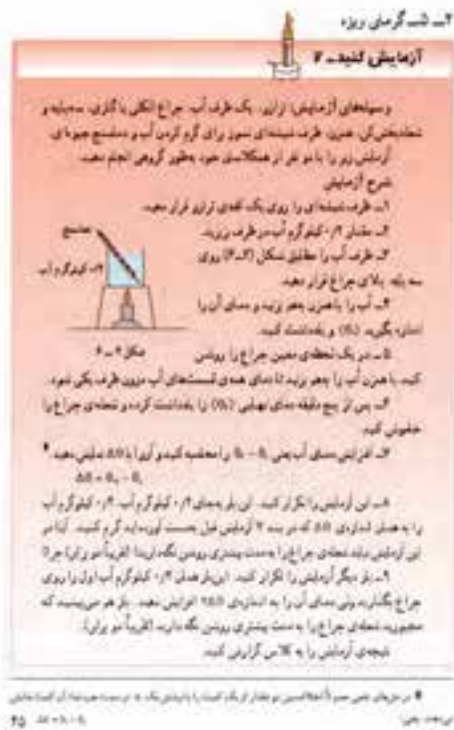 ۲ــ۵ــ گرمای ویژه
آزمایش کنید ــ ۷
وسیله‌های آزمایش: ترازو، یک ظرف آب، چراغ الکلی یا گازی، سه‌پایه و
شعله‌پخش‌کن، همزن، ظرف شیشه‌ای نسوز برای گرم کردن آب و دماسنج جیوه‌ای.
آزمایش زیر را با دو نفر از همکلاسی خود به‌طور گروهی انجام دهید.
شرح آزمایش
۱ــ ظرف شیشه‌ای را روی یک کفه‌ی ترازو قرار دهید.
۲ــ مقدار ۰/۲ کیلوگرم آب در ظرف بریزید.
۳ــ ظرف آب را مطابق شکل (۲ــ۶) روی
سه پایه بالای چراغ قرار دهید.
۴ــ آب را با همزن بهم بزنید و دمای آن را
اندازه بگیرید (θ₁) و یادداشت کنید.
دماسنج
۰/۲ کیلوگرم آب
شکل ۲ــ۶
۵ــ در یک لحظه‌ی معین چراغ را روشن
کنید. با همزن آب را بهم بزنید تا دمای همه‌ی قسمت‌های آب درون ظرف یکی شود.
۶ــ پس از پنج دقیقه دمای نهایی (θ₂) را یادداشت کرده و شعله‌ی چراغ را
خاموش کنید.
۷ــ افزایش دمای آب یعنی θ₂ − θ₁ را محاسبه کنید و آن‌را با Δθ نمایش دهید.*
Δθ = θ₂ − θ₁
۸ــ این آزمایش را تکرار کنید. این بار به‌جای ۰/۲ کیلوگرم آب، ۰/۴ کیلوگرم آب
را به همان اندازه‌ی Δθ که در بند ۷ آزمایش قبل به‌دست آورده‌اید گرم کنید. آیا در
این آزمایش باید شعله‌ی چراغ را به مدت بیشتری روشن نگه دارید؟ (تقریباً دو برابر) چرا؟
۹ــ بار دیگر آزمایش را تکرار کنید. این‌بار همان ۰/۲ کیلوگرم آب اول را روی
چراغ بگذارید ولی دمای آن را به اندازه‌ی ۲Δθ افزایش دهید. باز هم می‌بینید که
مجبورید شعله‌ی چراغ را به مدت بیشتری روشن نگه دارید (تقریباً دو برابر).
نتیجه‌ی آزمایش را به کلاس گزارش کنید.
می‌دهند. یعنی: Δθ = θ₂ − θ₁
۴۵